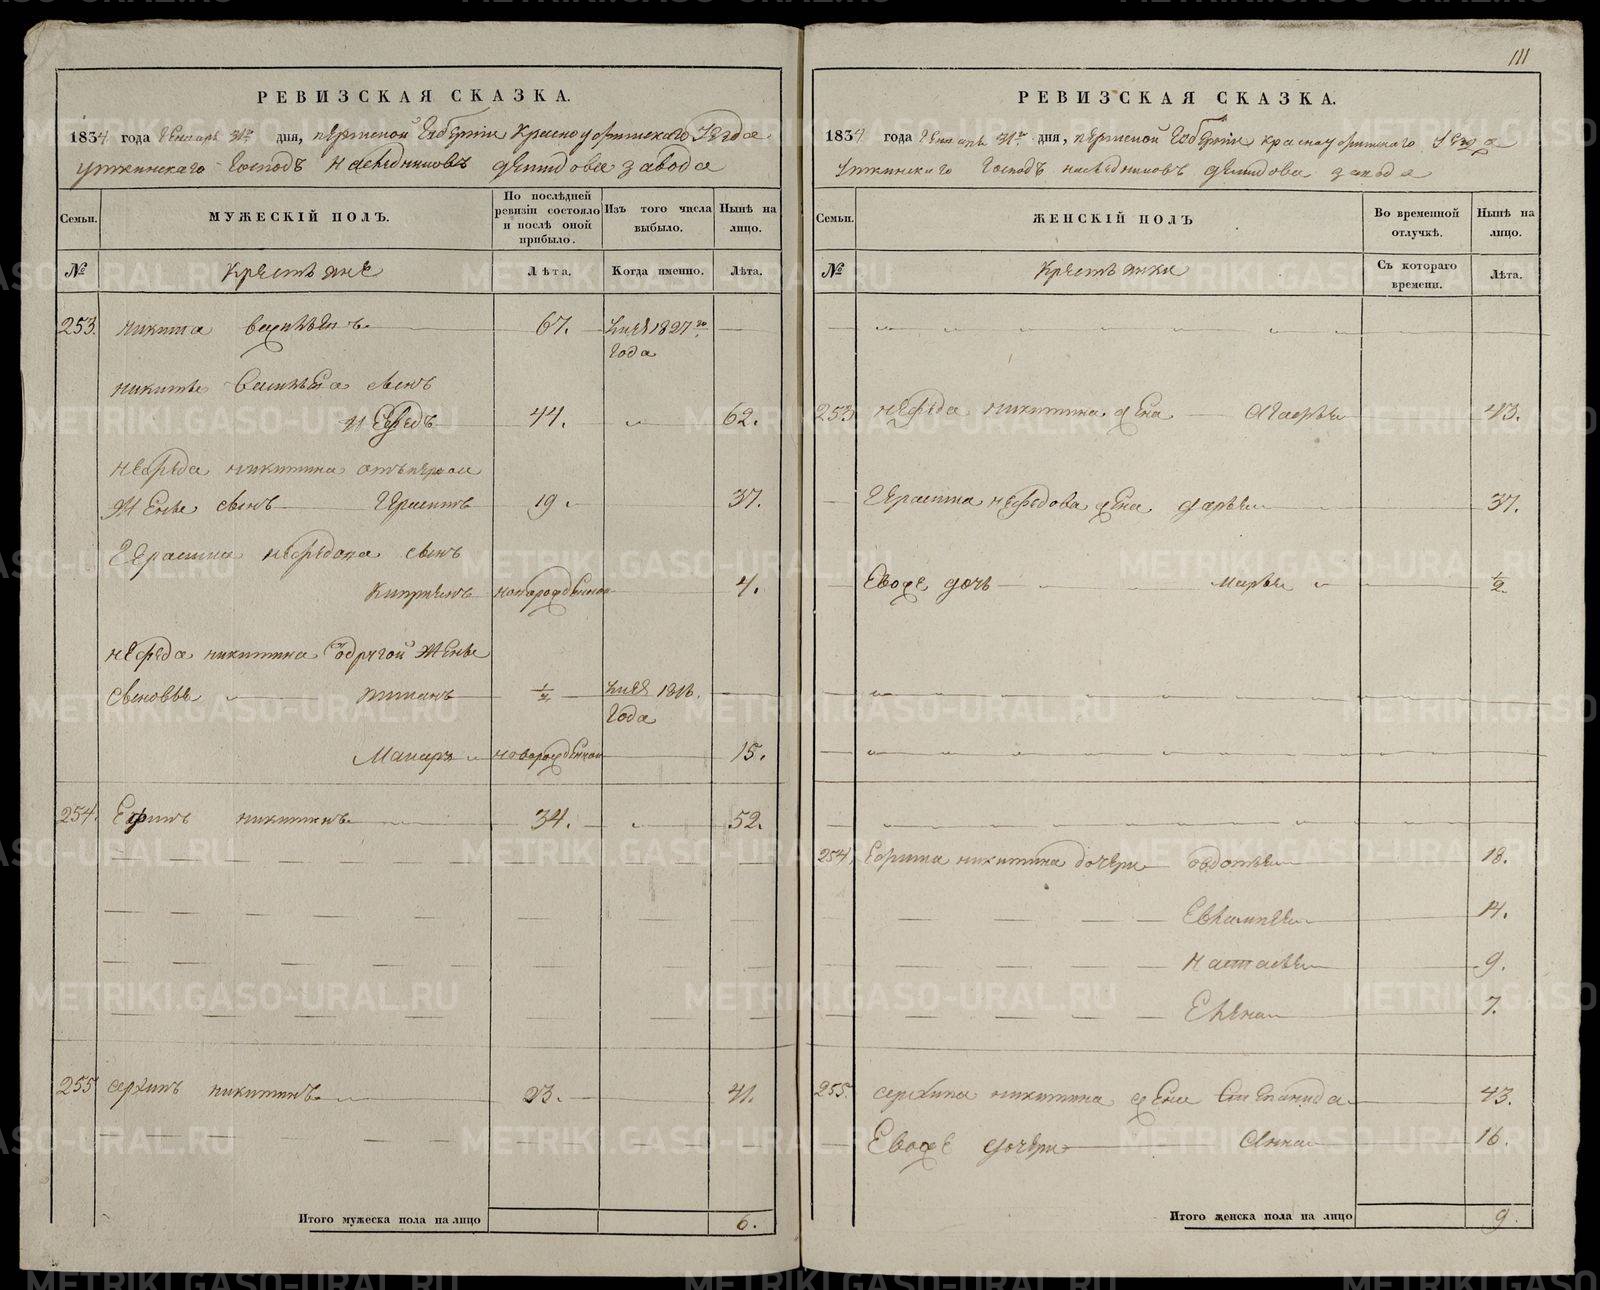 РЕВИЗСКАЯ СКАЗКА.
1834 года Генваря 31го дня, пермской Губернiи Красноуфимскаго Уезда
уткинскаго Господъ наследниковъ демидова завода
Семьи.
МУЖЕСКІЙ ПОЛЪ.
По послѣдней ревизіи состояло и послѣ оной прибыло.
Изъ того числа выбыло.
Нынѣ на лицо.
№
Крестьяне
Лѣта.
Когда именно.
Лѣта.
253. никита васильевъ 67. 1827го
года
никиты васильева сынъ
нефедъ 44. 62.
нефеда никитина отъ первой
жены сынъ Герасимъ 19. 37.
Герасима нефедова сынъ
Киприянъ новорожденной 4.
нефеда никитина отъ другой жены
сыновья 1818.
года
Макаръ новорожденной 15.
254. Ефимъ никитинъ 34. 52.
255 архипъ никитинъ 23. 41.
Итого мужеска пола на лицо 6.
111
РЕВИЗСКАЯ СКАЗКА.
1834 года Генваря 31го дня, пермской Губернiи красноуфимскаго Уезда
Уткинскаго Господъ наследниковъ демидова завода
Семьи.
ЖЕНСКІЙ ПОЛЪ
Во временной отлучкѣ.
Нынѣ на лицо.
№
Крестьянки
Съ котораго времени.
Лѣта.
253 нефеда никитина жена Марья 43.
Герасима нефедова жена дарья 37.
Евоже дочь марья 1/2
254. Ефима никитина дочери овдотья 18.
Евлампия 14.
настасья 9.
Елена 7.
255. архипа никитина жена Степанида 43.
Евоже дочери Анна 16.
Итого женска пола на лицо 9.
METRIKI.GASO-URAL.RU